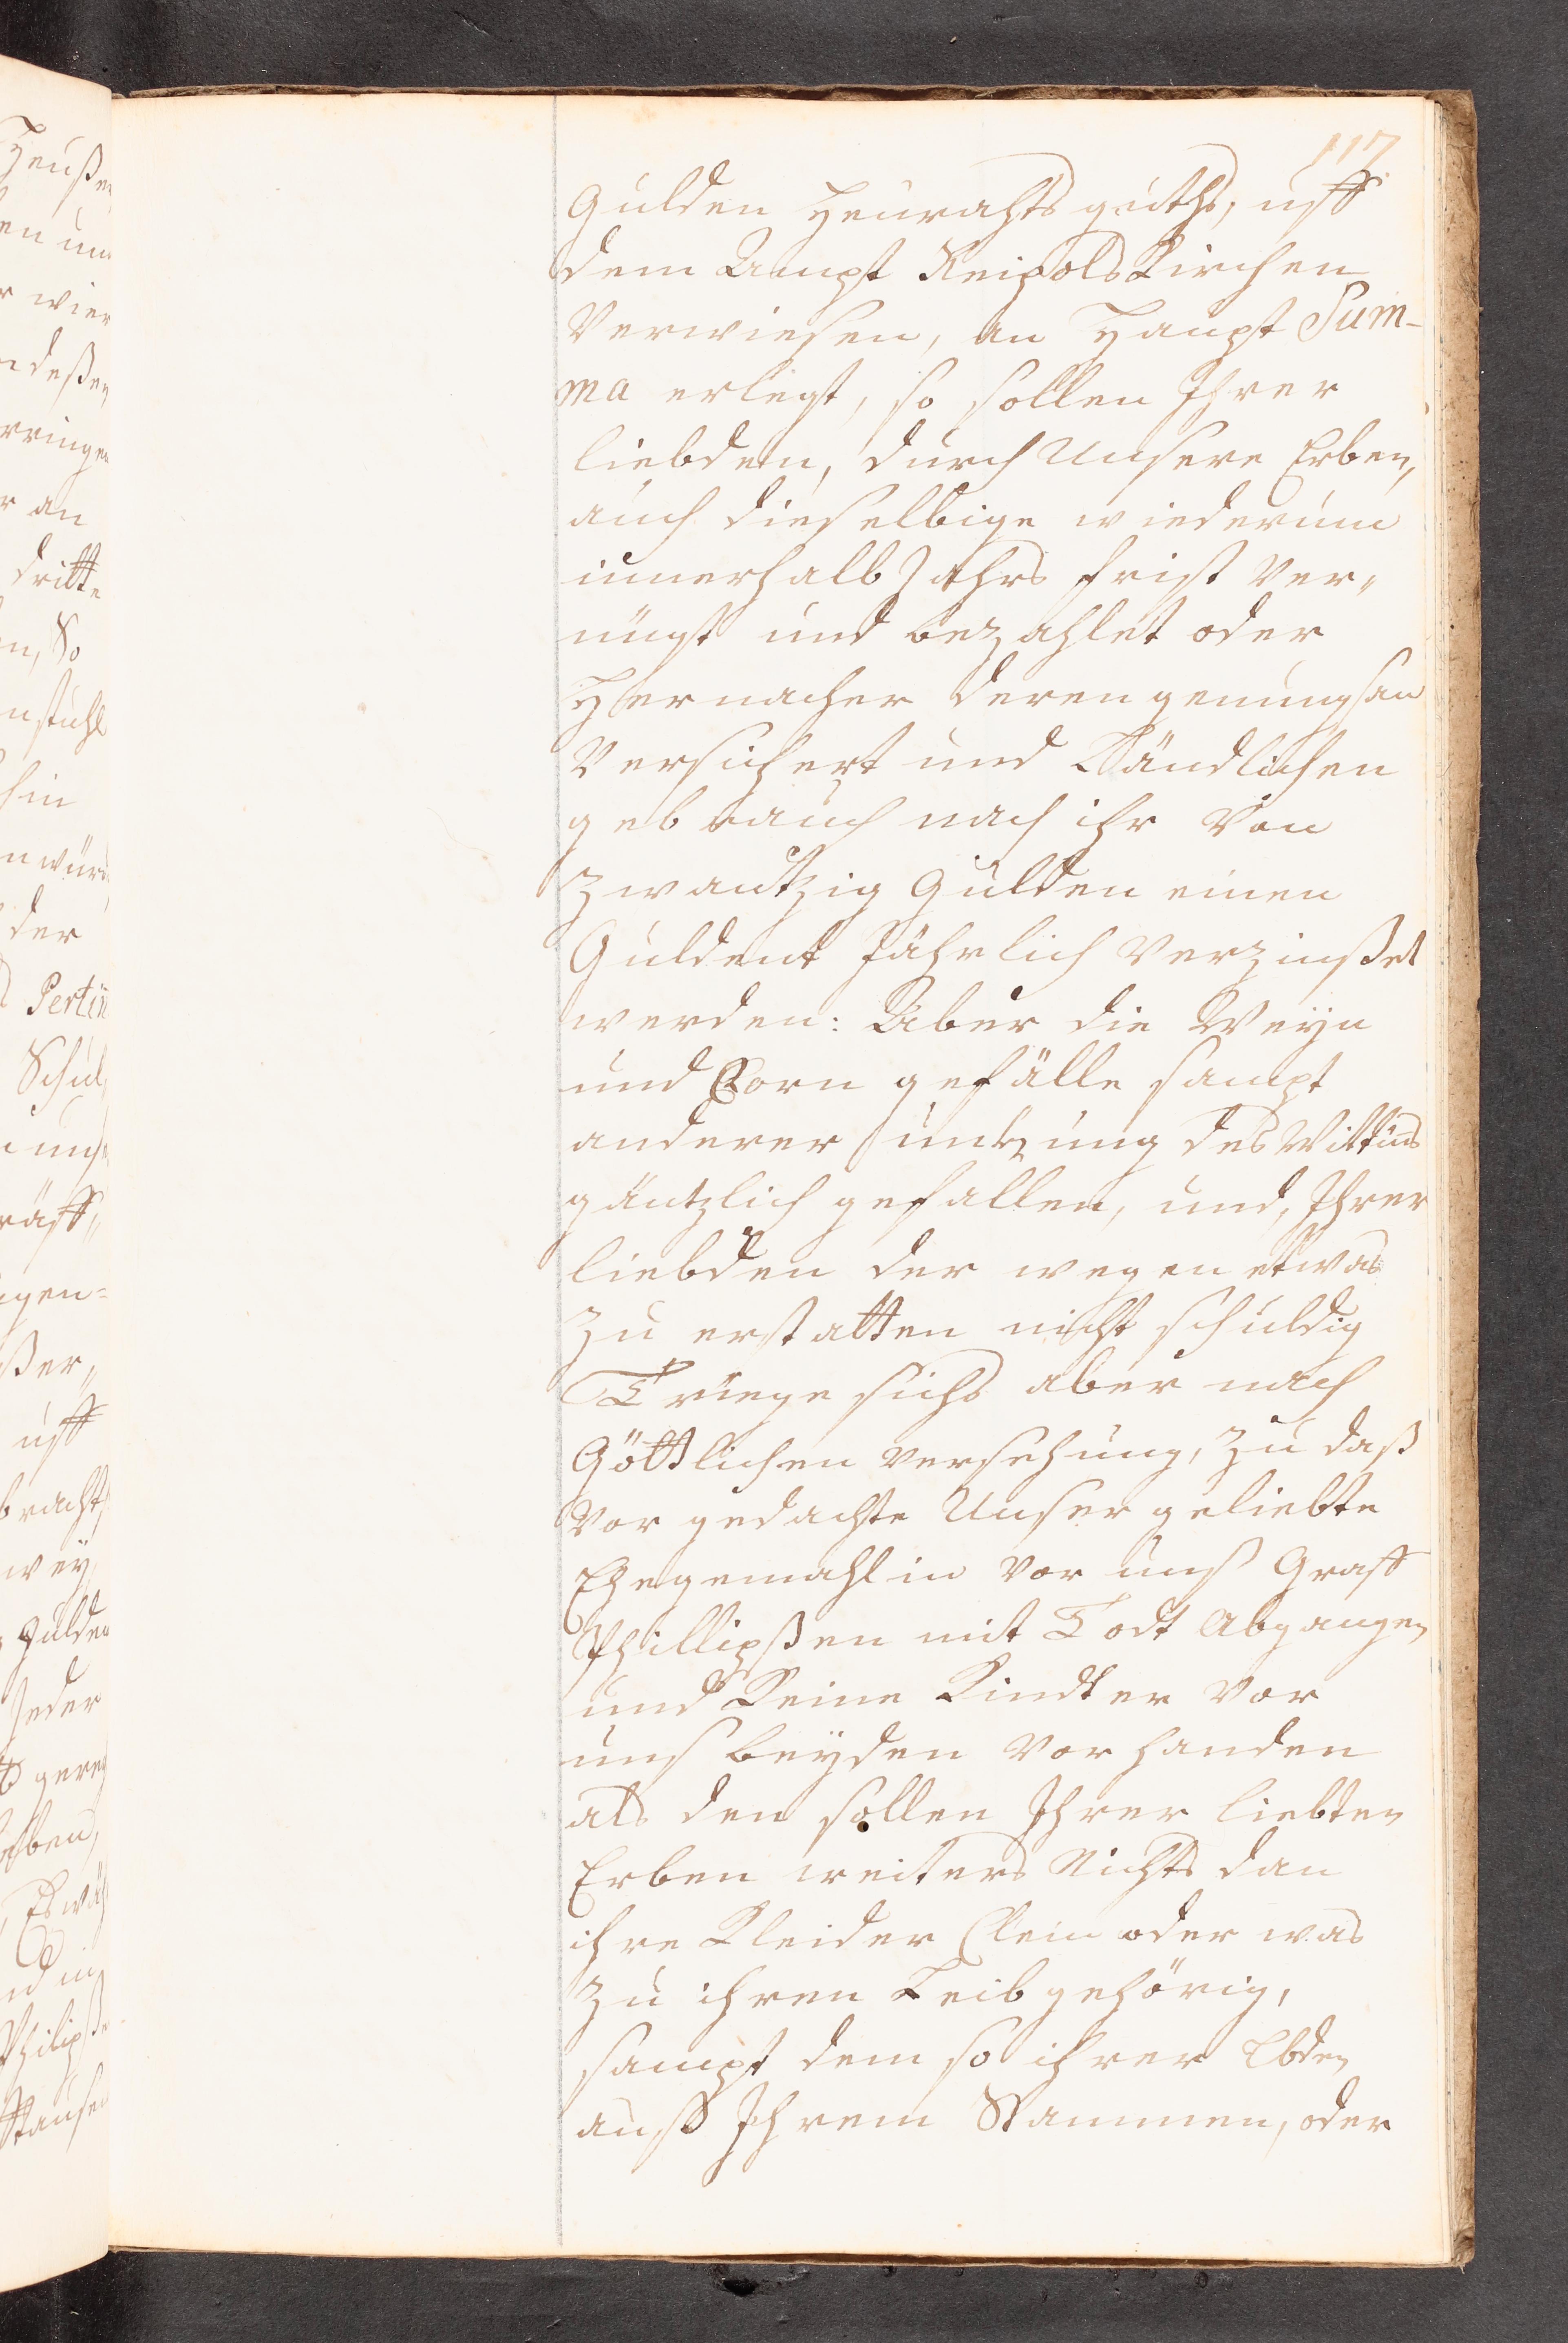 117
Gulden Heurahts guths, uff
dem Ampt Reipolskirchen
Verwiesen, an Haupt Sum-
ma erlegt, so sollen Ihrer
liebden, durch Unsere Erben,
auch dieselbige wiederumb
innerhalb Jahrs frist ver„
nügt und bezahlet oder
Hernacher deren genungsam
Versichert und Ländlichen
gebrauch nach ihr von
zwantzig Gulden einen
Guldent Jährlich verzinßet
werden: Aber die Weyn
und Corn gefälle sampt
anderer nutzung des Wittums
gäntzlich gefallen, und, Ihrer
liebden der wegen etwas
zu erstatten nicht schuldig
Trüege sichs aber nach
Göttlichen versehung, zu daß
Vor gedachte Unser geliebte
Ehegemahlin vor uns Graff
Phillipßen mit Todt Abgangen
und Keine Kindter vor
uns beyden vor handen
als den sollen Ihrer liebten
Erben weiters Nichts dan
ihre Kleider Clein oder was
zu ihren Leib gehörig,
sampt dem so ihrer Lbden
auß Ihrem Stammen, oder